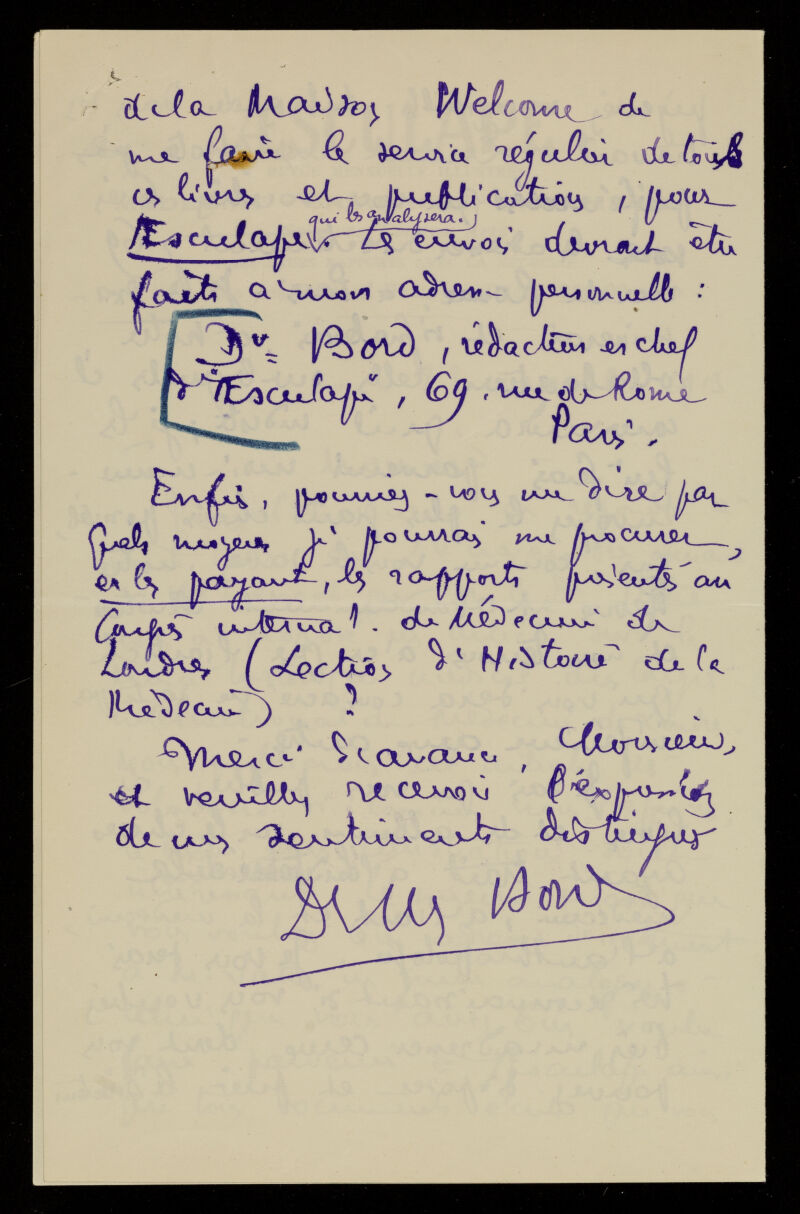 de la Maison Welcome de
me faire le service régulier de tous
ces livres et publications, pour
Esculape qui les analysera. Les envois devront être
faits à mon adresse personnelle :
Dr Bord, rédacteur en chef
d'"Esculape", 69. rue de Rome
Paris.
Enfin, pourriez-vous me dire par
quels moyens je pourrai me procurer,
en les payant, les rapports présentés au
Congrès internat. de Médecine de
Londres (Section d'Histoire de la
Médecine) ?
Merci d'avance, Monsieur,
et veuillez recevoir l'expression
de mes sentiments distingués
Dr Bord